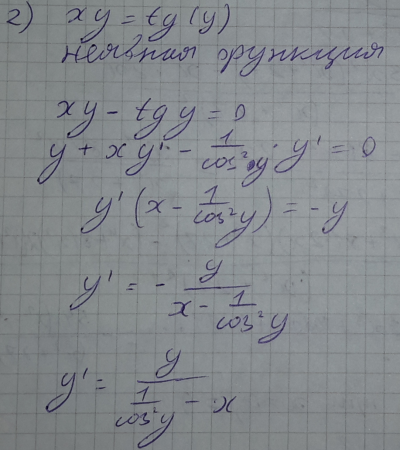 2) xy = tg(y)
неявная функция
xy - tg y = 0
y + xy' - 1/cos²y · y' = 0
y' (x - 1/cos²y) = -y
y' = - y/(x - 1/cos²y)
y' = y/(1/cos²y - x)